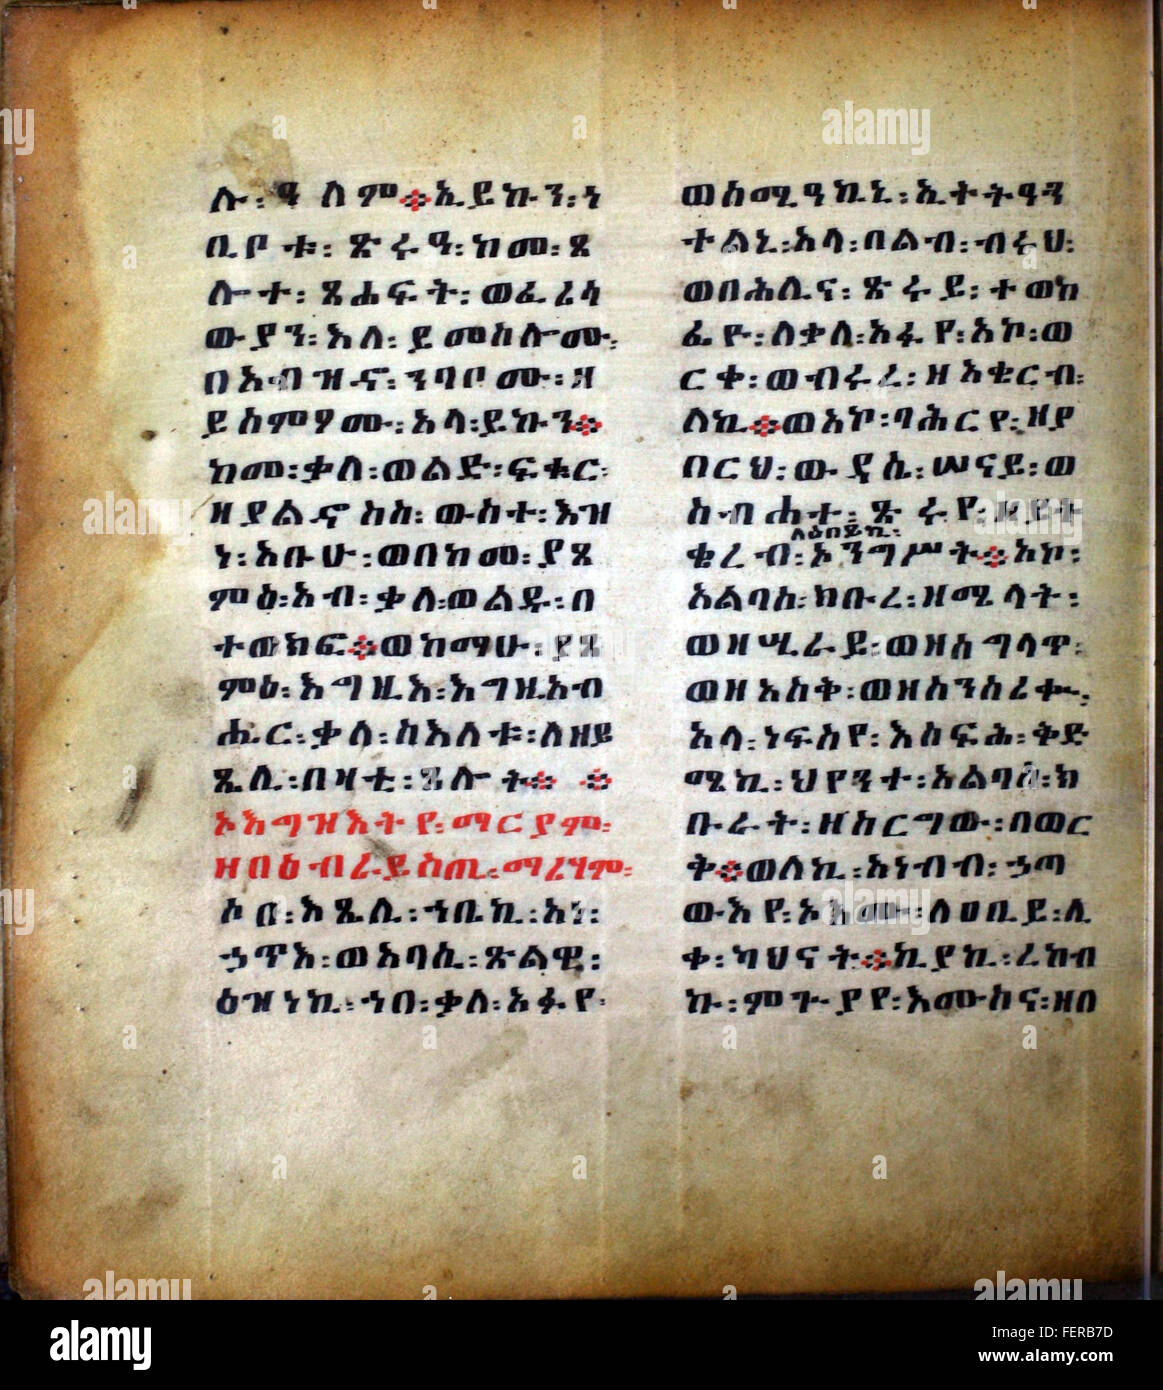 ሉ፡ ዓለም፨ኢይኩን፡ነ
ቢቦቱ፡ ጽሩዓ፡ከመ፡ጸ
ሎተ፡ ጼሐፍት፡ወፈሪሳ
ውያን፡እለ፡ይመስሎሙ፡
በአብዝኆ፡ንባቦሙ፡ዘ
ይሰምዖሙ፡አላ፡ይኩን፨
ከመ፡ቃለ፡ወልድ፡ፍቁር፡
ዘያልኆሰስ፡ውስተ፡እዝ
ነ፡አቡሁ፡ወበከመ፡ያጸ
ምዕ፡አብ፡ቃለ፡ወልዱ፡በ
ተወክፎ፨ወከማሁ፡ያጸ
ምዕ፡እግዚእ፡እግዚአብ
ሔር፡ቃለ፡ከእለቱ፡ለዘይ
ጼሊ፡በዛቲ፡ጸሎት፨ ፨
ኦእግዝእትየ፡ማርያም፡
ዘበዕብራይስጢ፡ማሪሃም፡
ኦ በ፡እጼሊ፡ኀቤኪ፡አነ፡
ኃጥእ፡ወአባሲ፡ጽልዊ፡
ዕዝነኪ፡ኀበ፡ቃለ፡አፉየ፡
ወስሚዓኪኒ፡ኢተትዓን
ተልኒ፡አላ፡በልብ፡ብሩህ፡
ወበሕሊና፡ጽሩይ፡ተወከ
ፊዮ፡ለቃለ፡አፉየ፡አኮ፡ወ
ርቀ፡ወብሩረ፡ዘአቄርብ፡
ለኪ፨ወአኮ፡ባሕርየ፡ዘያ
በርህ፡ው ሠናይ፡ወ
ስብሐተ፡ጽሩየ፡ዘይት
ለዕበይኪ፡
ቄረብ፡ኦንግሥት፨አኮ፡
አልባሰ፡ክቡረ፡ዘሜላት፡
ወዘሢራይ፡ወዘሰግላጥ፡
ወዘአስቅ፡ወዘሰንሰሪቀ፡
አላ፡ነፍስየ፡እሰፍሕ፡ቅድ
ሜኪ፡ህየንተ፡አልባስ፡ክ
ቡራት፡ዘስርግው፡በወር
ቅ፨ወለኪ፡አነብብ፡ኃጣ
ውእየ፡ኦእሙ፡ለሀቢይ፡ሊ
ቀ፡ካህናት፨ኪያኪ፡ረከብ
ኩ፡ምጕያየ፡እሙስና፡ዘበ